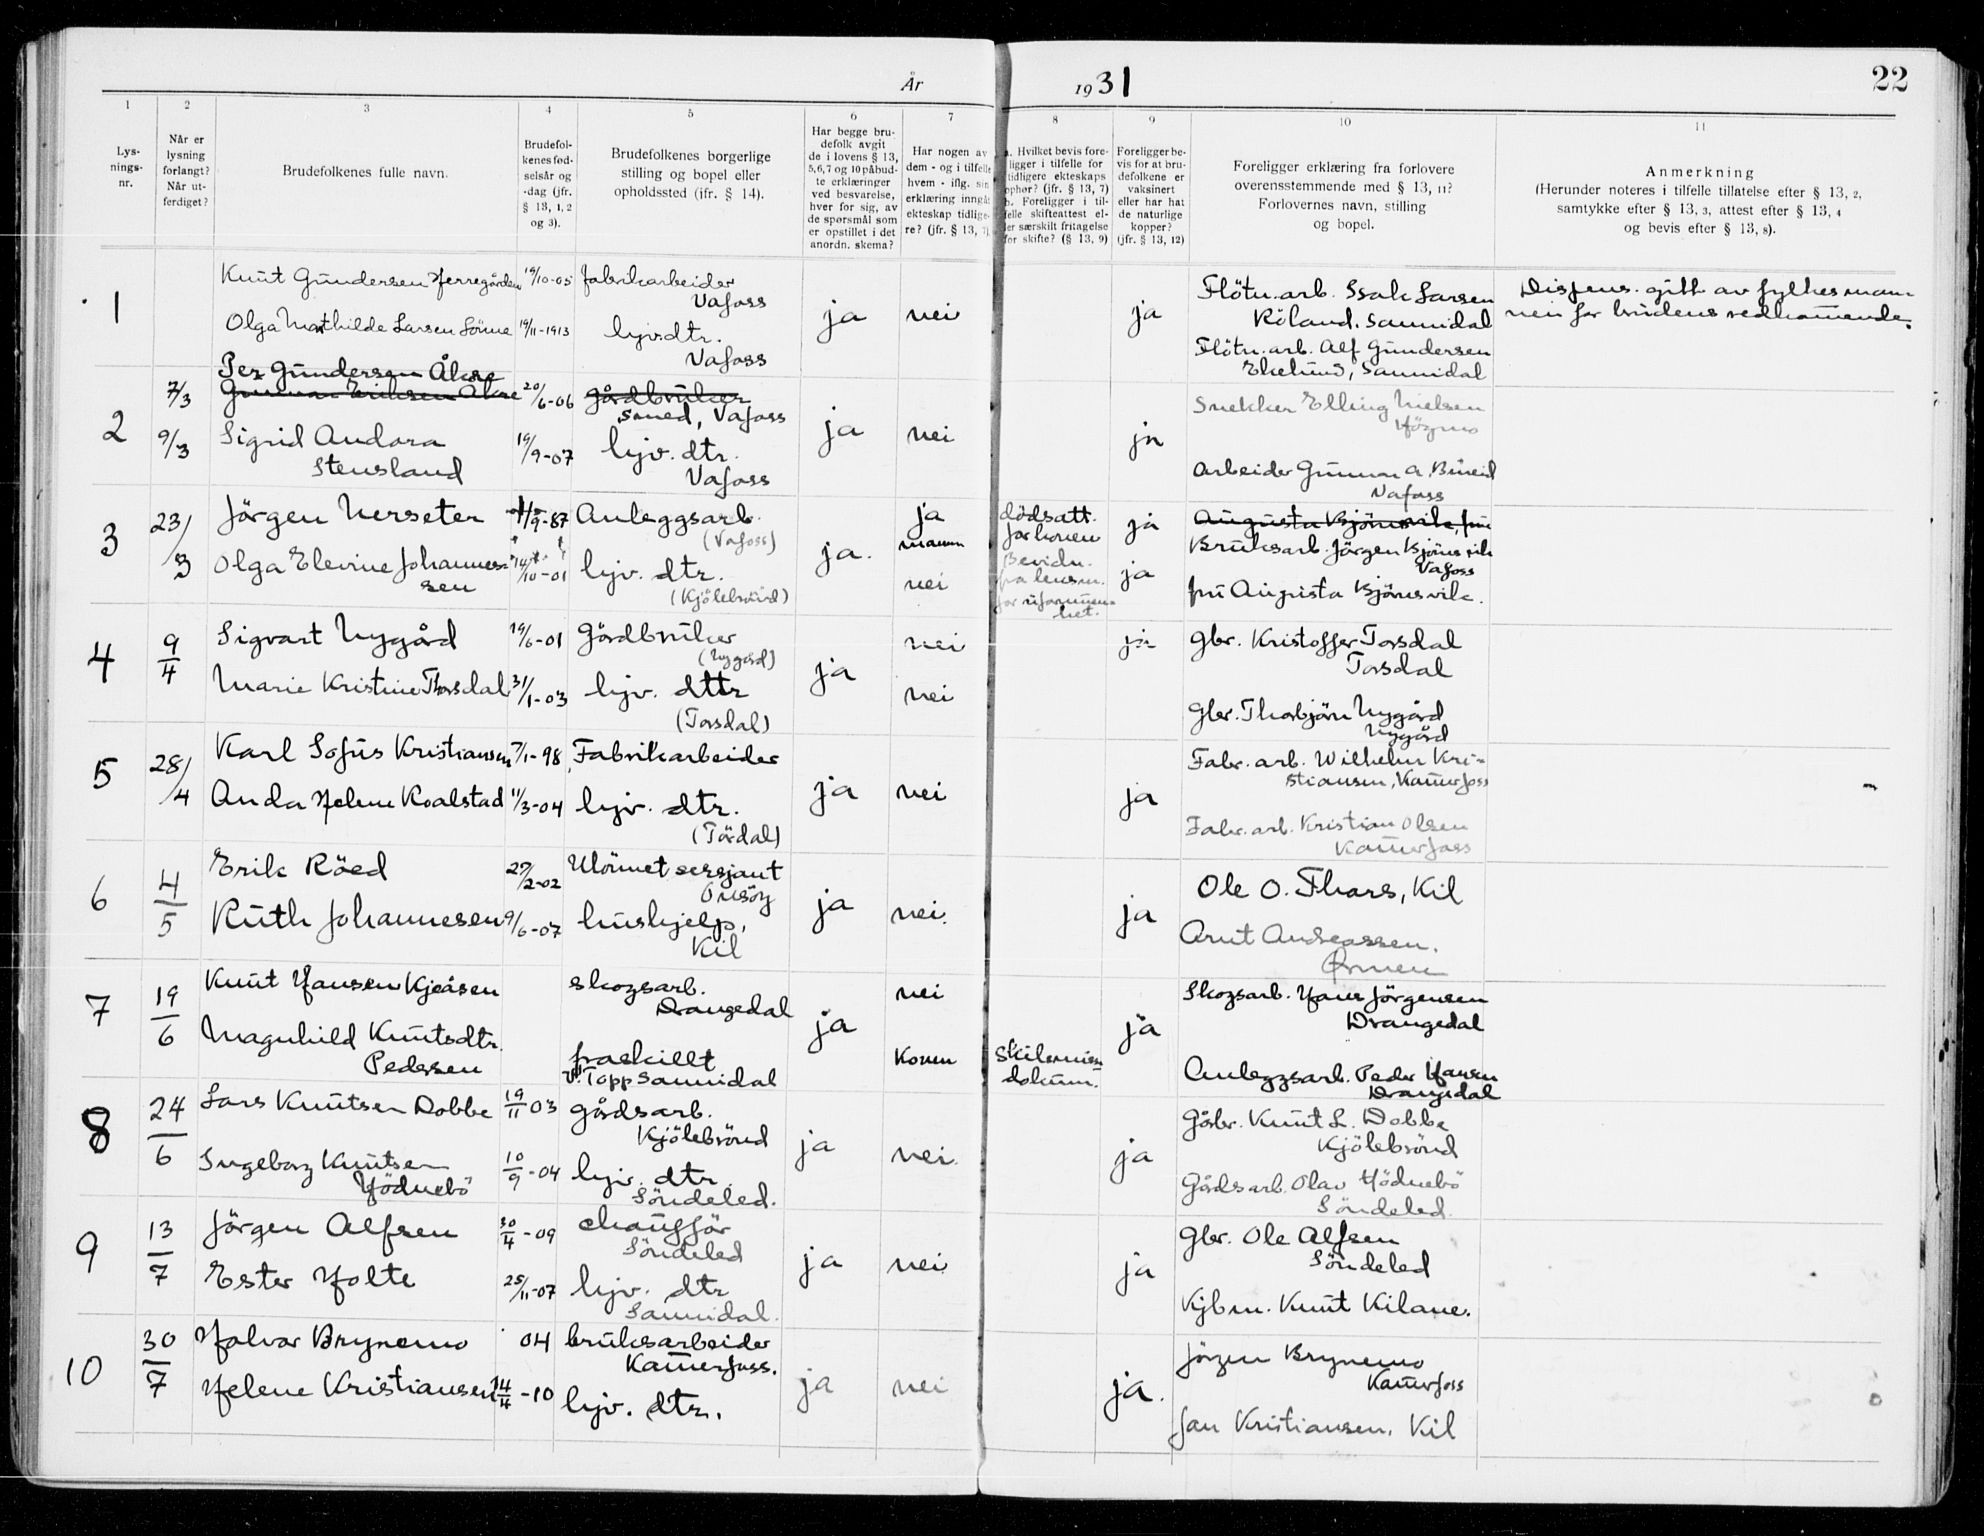 År 1931
22
1 2 3 4 5 6 7 8 9 10 11
Lys-
nings-
nr.
Når er
lysning
forlangt?
Når ut-
ferdiget?
Brudefolkenes fulle navn.
Brudefol-
kenes fød-
selsår og
-dag (jfr.
§ 13, 1, 2
og 3).
Brudefolkenes borgerlige
stilling og bopel eller
opholdssted (jfr. § 14).
Har begge bru-
defolk avgit
de i lovens § 13,
5,6,7 og 10 påbud-
te erklæringer
ved besvarelse,
hver for sig, av
de spørsmål som
er opstillet i det
anordn. skema?
Har nogen av
dem - og i tilfelle
hvem - iflg. sin
erklæring inngåt
ekteskap tidlige-
re? (jfr. § 13, 7)
a. Hvilket bevis fore-
ligger i tilfelle for
tidligere ekteskaps
ophør? (jfr. § 13, 7)
b. Foreligger i til-
felle skifteattest el-
ler særskilt fritagelse
for skifte? (§ 13, 9)
Foreligger be-
vis for at bru-
defolkene er
vaksinert
eller har hat
de naturlige
kopper?
(jfr. § 13, 12)
Foreligger erklæring fra forlovere
overensstemmende med § 13, 11?
Forlovernes navn, stilling
og bopel.
Anmerkning
(Herunder noteres i tilfelle tillatelse efter § 13, 2,
samtykke efter § 13, 3, attest efter § 13, 4
og bevis efter § 13, 8).
1
Knut Gundersen Herregården
19/10-05
fabrikarbeider
Vafoss
Olga Mathilde Larsen Lönne
19/11-1913
hjv.dtr.
Vafoss
ja
nei
ja
Flötn.arb. Isak Larsen
Röland. Sannidal
Flötn.arb. Alf Gundersen
Ekelund, Sannidal
Dispens. gitt av fylkesman-
nen for brudens vedkommende.
2
7/3
9/3
Per Gundersen Åkre
Gunnar Eriksen Åkre
20/6-06
gårdbruker
smed, Vafoss
Sigrid Andora
Stensland
19/9-07
hjv. dtr.
Vafoss
ja
nei
ja
Snekker Elling Nielsen
Högmo
Arbeider Gunnar A.
Vafoss
3
23/3
Jörgen Nerseter
1/9-87
Anleggsarb.
(Vafoss)
Olga Elevine Johannes-
sen
14/10-01
hjv. dtr.
(Kjölebrönd)
ja.
ja
mannen
nei
dödsatt.
for konen
Bevidn.
fra lensm.
for uformuen-
het.
ja
ja
Augusta Bjönsvik, fru
Bruksarb. Jörgen Bjönsvik
Vafoss
fru Augusta Bjönsvik.
4
9/4
Sigvart Nygård
19/6-01
Gårdbruker
(Nygård)
Marie Kristine Thorsdal
31/1-03
hjv. dttr
(Torsdal)
ja
nei
nei
ja
Gbr. Kristoffer Torsdal
Torsdal
Gbr. Thorbjörn Nygård
Nygård
5
28/4
Karl Sofus Kristiansen
7/1-98
Fabrikarbeider
Anda Helene Koalstad
11/3-04
hjv. dtr.
(Tördal)
ja
nei
ja
Fabr. arb. Wilhelm Kri-
stiansen, Kammerfoss
Fabr. arb. Kristian Olsen
Kammerfoss
6
4/5
Erik Röed
27/2-02
Ulönnet sersjant
Onsöy
Ruth Johannesen
9/6-07
hushjelp,
Kil
ja
nei.
ja
Ole O. Thors, Kil
Arnt Andreassen.
7
19/6
Knut Hansen Kjeåsen
skogsarb.
Drangedal
Magnhild Knutsdtr.
Pedersen
fraskillt
v. Topp Sannidal
ja
nei
Konen
Skilsmisse-
dokum.
ja
Skogsarb. Hans Jörgensen
Drangedal
Anleggsarb. Peder Hansen
Drangedal
8
24/6
Lars Knutsen Dobbe
19/11 03
gårdsarb.
Kjölebrönd
Ingeborg Knutsen
Hödnebö
10/9-04
hjv. dtr
Söndeled.
ja
nei.
ja
Gårbr. Knut L. Dobbe
Kjölebrönd
Gårdsarb. Olav Hödnebö
Söndeled
9
13/7
Jörgen Alfsen
30/4-09
chaufför
Söndeled
Ester Holte
25/11-07
hjv. dtr
Sannidal.
ja
nei.
ja
Gbr. Ole Alfsen
Söndeled
Kjbm. Knut Kilane.
10
30/7
Halvor Brynemo
04
bruksarbeider
Kammerfoss.
Helene Kristiansen
14/4-10
hjv. dtr.
ja
nei
ja.
Jörgen Brynemo
Kammerfoss
Jan Kristiansen. Kil